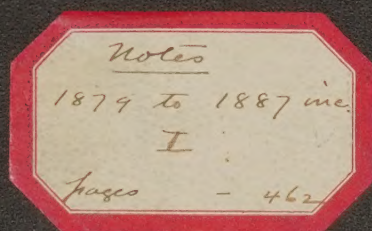 Notes
1879 to 1887 inc.
I
pages - 462